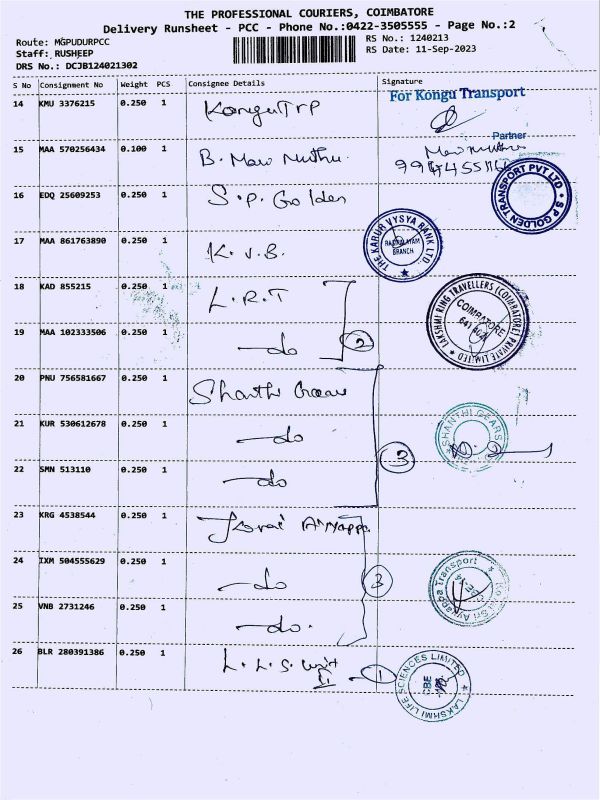 THE PROFESSIONAL COURIERS, COIMBATORE
Delivery Runsheet - PCC - Phone No.:0422-3505555 - Page No.:2
Route: MGPUDURPCC
RS No.: 1240213
Staff: RUSHEEP
RS Date: 11-Sep-2023
DRS No.: DCJB124021302
S No Consignment No Weight PCS Consignee Details Signature
14 KMU 3376215 0.250 1 Kongu TrP For Kongu Transport
Partner
15 MAA 570256434 0.100 1 B. Muthu
16 EDQ 25609253 0.250 1 S.P. Golden S P GOLDEN TRANSPORT PVT LTD
17 MAA 861763890 0.250 1 K.V.B. THE KARUR VYSYA BANK LTD. BRANCH
18 KAD 855215 0.250 1 L.R.T LAKSHMI RING TRAVELLERS (COIMBATORE) PRIVATE LIMITED COIMBATORE
19 MAA 102333506 0.250 1 -do 2
20 PNU 756581667 0.250 1 Shanthi Gears
21 KUR 530612678 0.250 1 -do SHANTHI GEARS
22 SMN 513110 0.250 1 -do 3
23 KRG 4538544 0.250 1 Ayyappa
24 IXM 504555629 0.250 1 -do 3 Sri Ayyappa Transport
25 VNB 2731246 0.250 1 -do.
26 BLR 280391386 0.250 1 L.L.S. Unit II 1 LAKSHMI LIFE SCIENCES LIMITED CBE